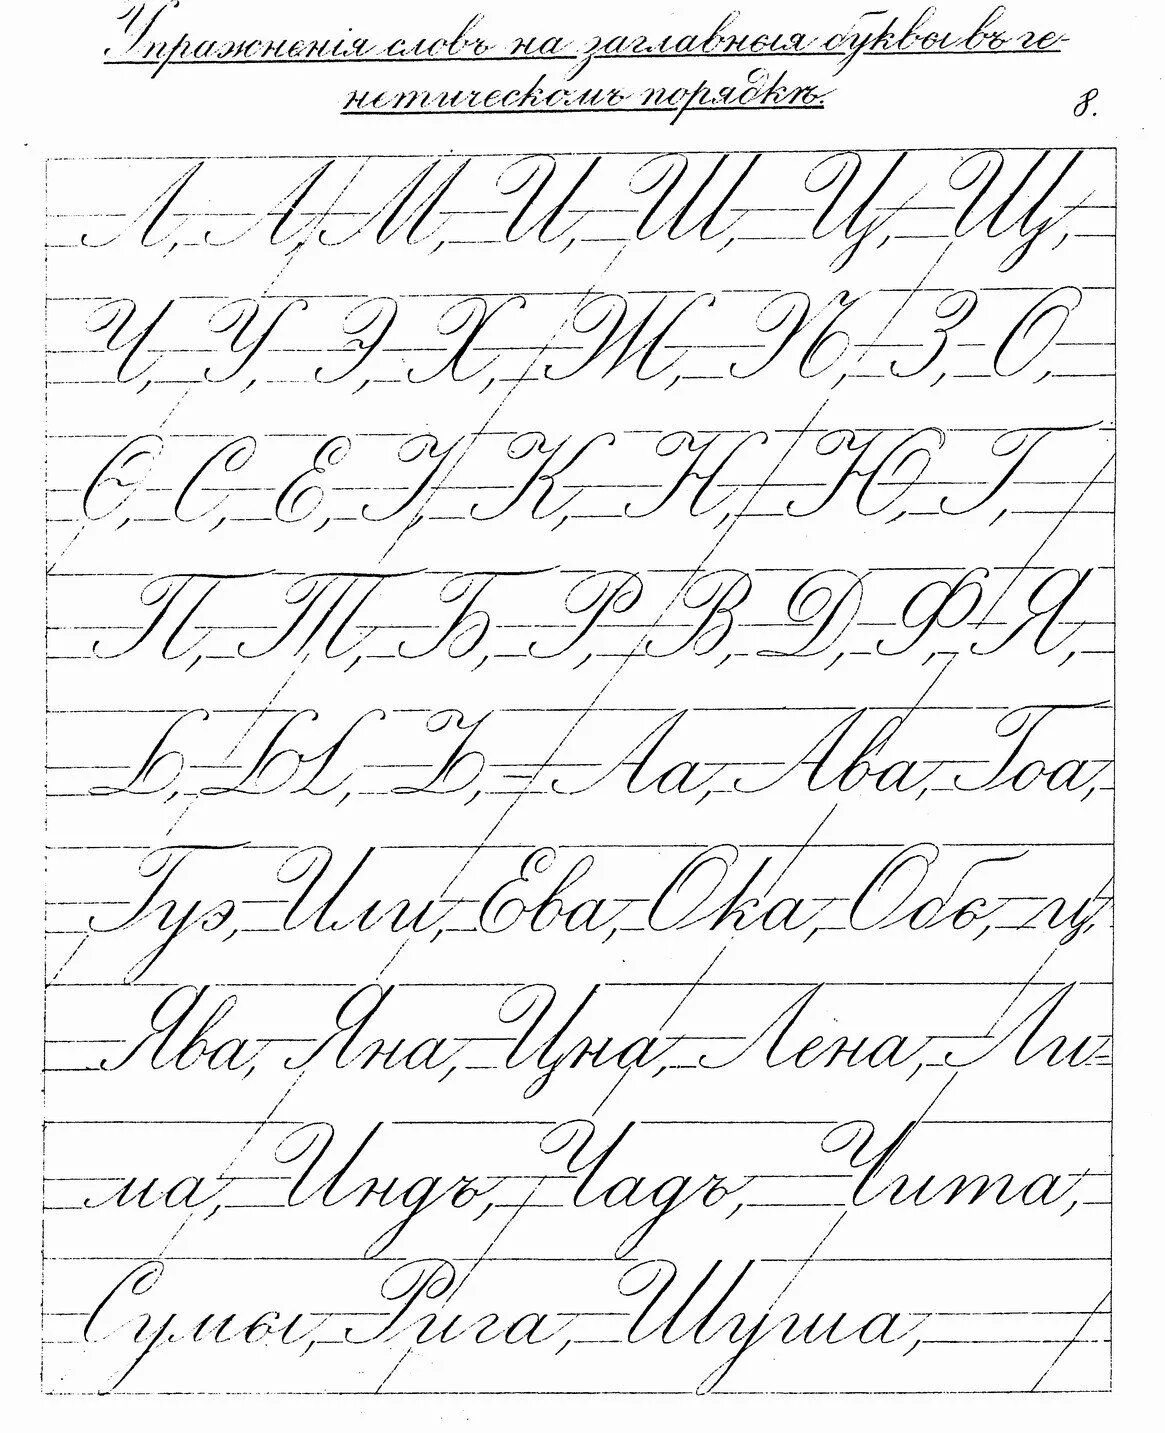 Упражненія словъ на заглавныя буквы въ ге-
нетическомъ порядкѣ.
8.
Л, А, М, И, Ш, Ц, Щ,
Ч, У, Э, Х, Ж, Ѣ, З, О,
Ѳ, С, Е, І, К, Н, Ю, Г,
П, Т, Б, Р, В, Д, Ф, Я,
Ь, Ы, Ъ, = Аа, Ава, Гоа,
Гуэ, Или, Ева, Ока, Обь, гц,
Ява, Яна, Цна, Лена, Ли=
ма, Индъ, Чадъ, Чита,
Сумы, Рига, Шуша,